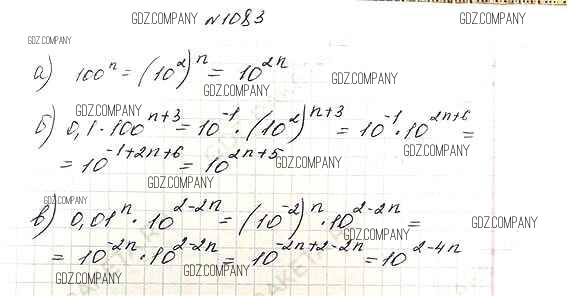 GDZ.COMPANY №1083 GDZ.COMPANY GDZ.COMPANY
GDZ.COMPANY
а) 100^n = (10^2)^n = 10^{2n} GDZ.COMPANY
GDZ.COMPANY
GDZ.COMPANY
б) 0,1 · 100^{n+3} = 10^{-1} · (10^2)^{n+3} = 10^{-1} · 10^{2n+6} =
GDZ.COMPANY
= 10^{-1+2n+6} = 10^{2n+5}
GDZ.COMPANY
GDZ.COMPANY
в) 0,01^n · 10^{2-2n} = (10^{-2})^n · 10^{2-2n} = GDZ.COMPANY
GDZ.COMPANY
= 10^{-2n} · 10^{2-2n} = 10^{-2n+2-2n} = 10^{2-4n}
GDZ.COMPANY GDZ.COMPANY